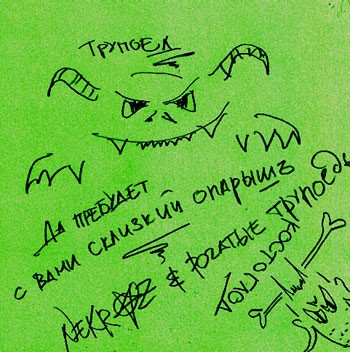 ТРУПОЕД
ДА ПРЕБУДЕТ
С ВАМИ СКЛИЗКИЙ ОПАРЫШЪ
NEKROZ & РОГАТЫЕ ТРУПОЕДЫ